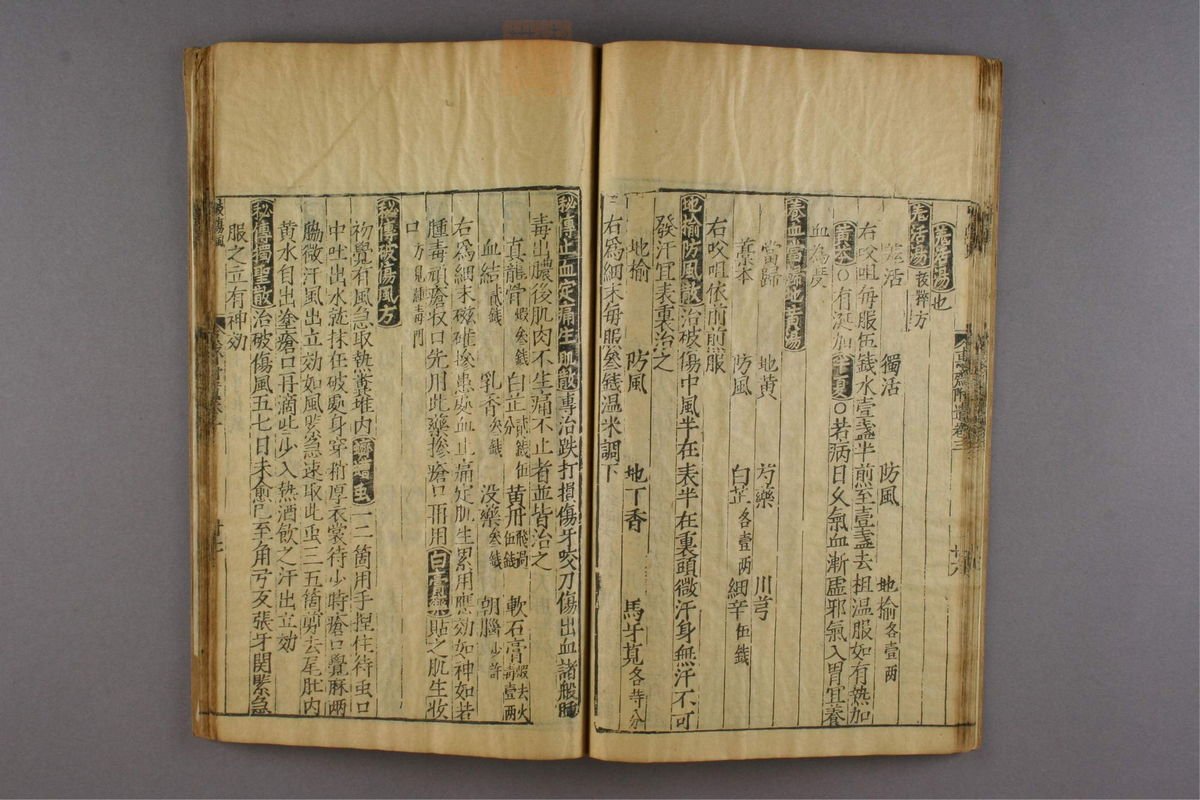 羗活湯也
羗活湯 後粹方
羗活 獨活 防風 地榆各壹両
右㕮咀毎服伍錢水壹盞半煎至壹盞去柤温服如有熱加
黃芩○有涎加半夏○若病日乆氣血漸虛邪氣入胃宜養
血為度
養血當歸地黃湯
當歸 地黃 芍藥 川芎
藁本 防風 白芷各壹両 細辛伍錢
右㕮咀依前煎服
地榆防風散治破傷中風半在表半在裏頭微汗身無汗不可
發汗宜表裏治之
地榆 防風 地丁香 馬牙莧各等分
右爲細末每服叄錢温米調下
秘傳止血定痛生肌散專治跌打損傷牙咬刀傷出血諸般腫
毒出膿後肌肉不生痛不止者並皆治之
真龍骨煅叄錢 白芷貳錢伍分 黃丹飛過伍錢 軟石膏煅去火毒壹両
血結貳錢 乳香叄錢 没藥叄錢 朝腦少許
右爲細末磁確摻患處血止痛定肌生累用應効如神如若
腫毒頑瘡收口先用此藥摻瘡口再用白膏藥貼之肌生收
口 方見腫毒門
秘傳破傷風方
初覺有風急取熱糞堆内蠐螬虫一二箇用手捏住待虫口
中吐出水就抹在破處身穿稍厚衣裳待少時瘡口覺麻両
脇微汗風出立効如風緊急速取此虫三五箇剪去尾肚内
黃水自出塗瘡口再滴些少入熱酒飲之汗出立効
秘傳獨聖散治破傷風五七日未愈已至角弓反張牙関緊急
服之立有神効